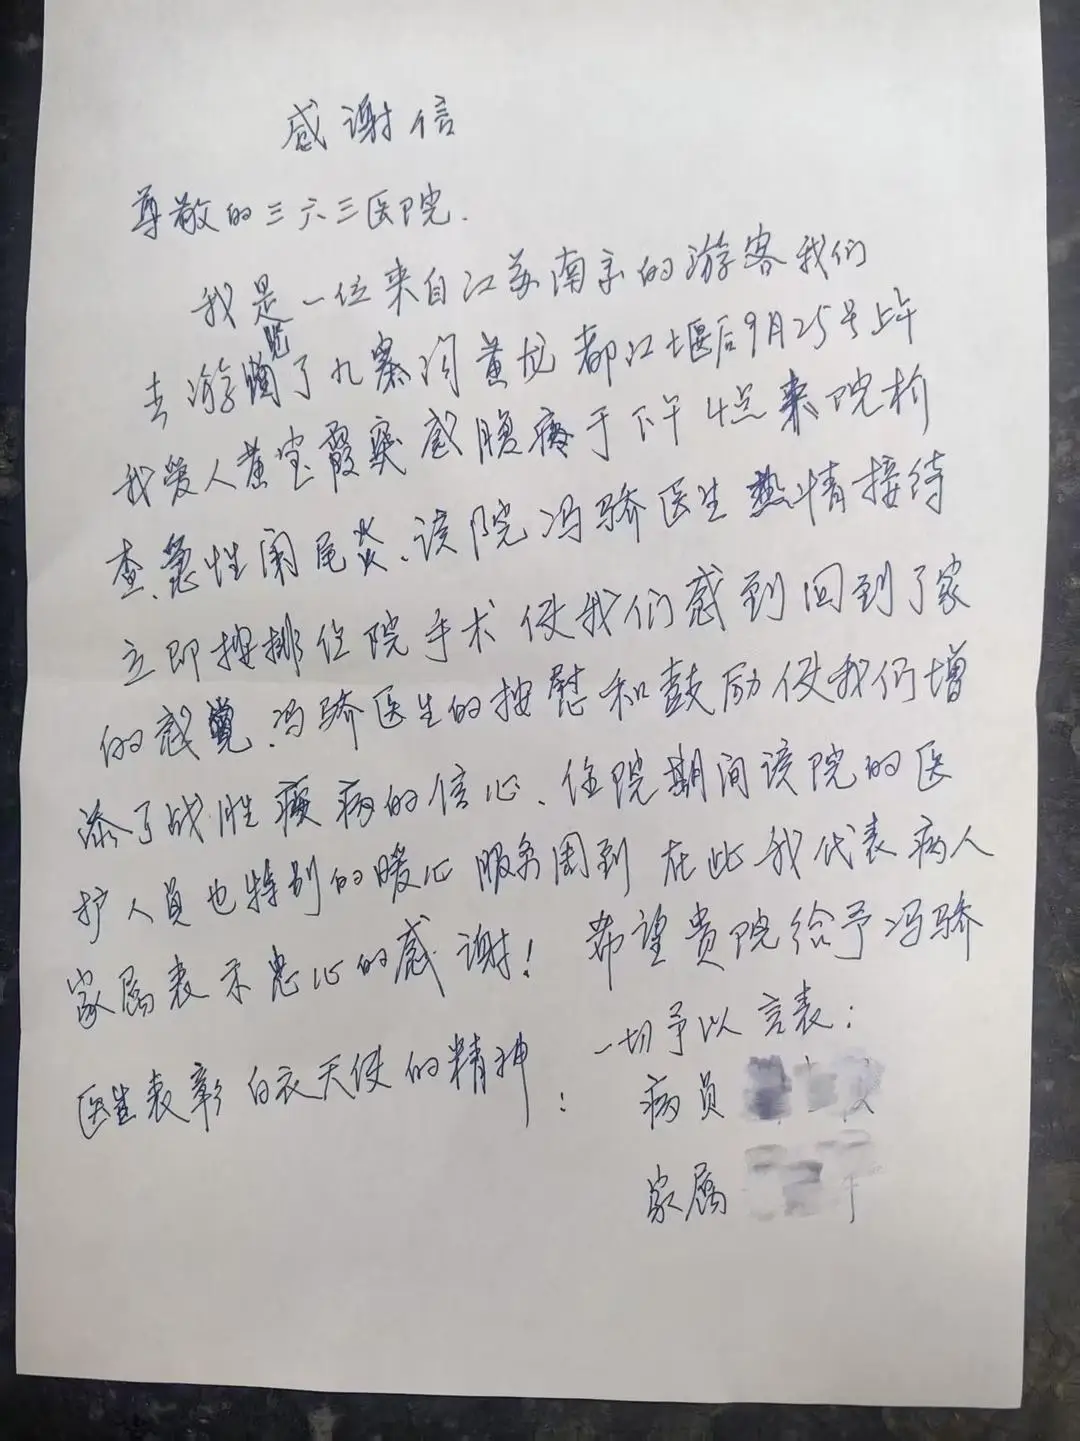 感谢信
尊敬的三六三医院.
我是一位来自江苏南京的游客我们
去游览了九寨沟黄龙都江堰后9月25号上午
我爱人黄宝霞突感腹疼于下午4点来院检
查、急性阑尾炎、该院冯骄医生热情接待
立即按排住院手术使我们感到回到了家
的感觉、冯骄医生的按慰和鼓励使我们增
添了战胜疾病的信心、住院期间该院的医
护人员也特别的暖心服务周到 在此我代表病人
家属表示忠心的感谢! 希望贵院给予冯骄
医生表彰白衣天使的精神 一切予以言表:
病员
家属